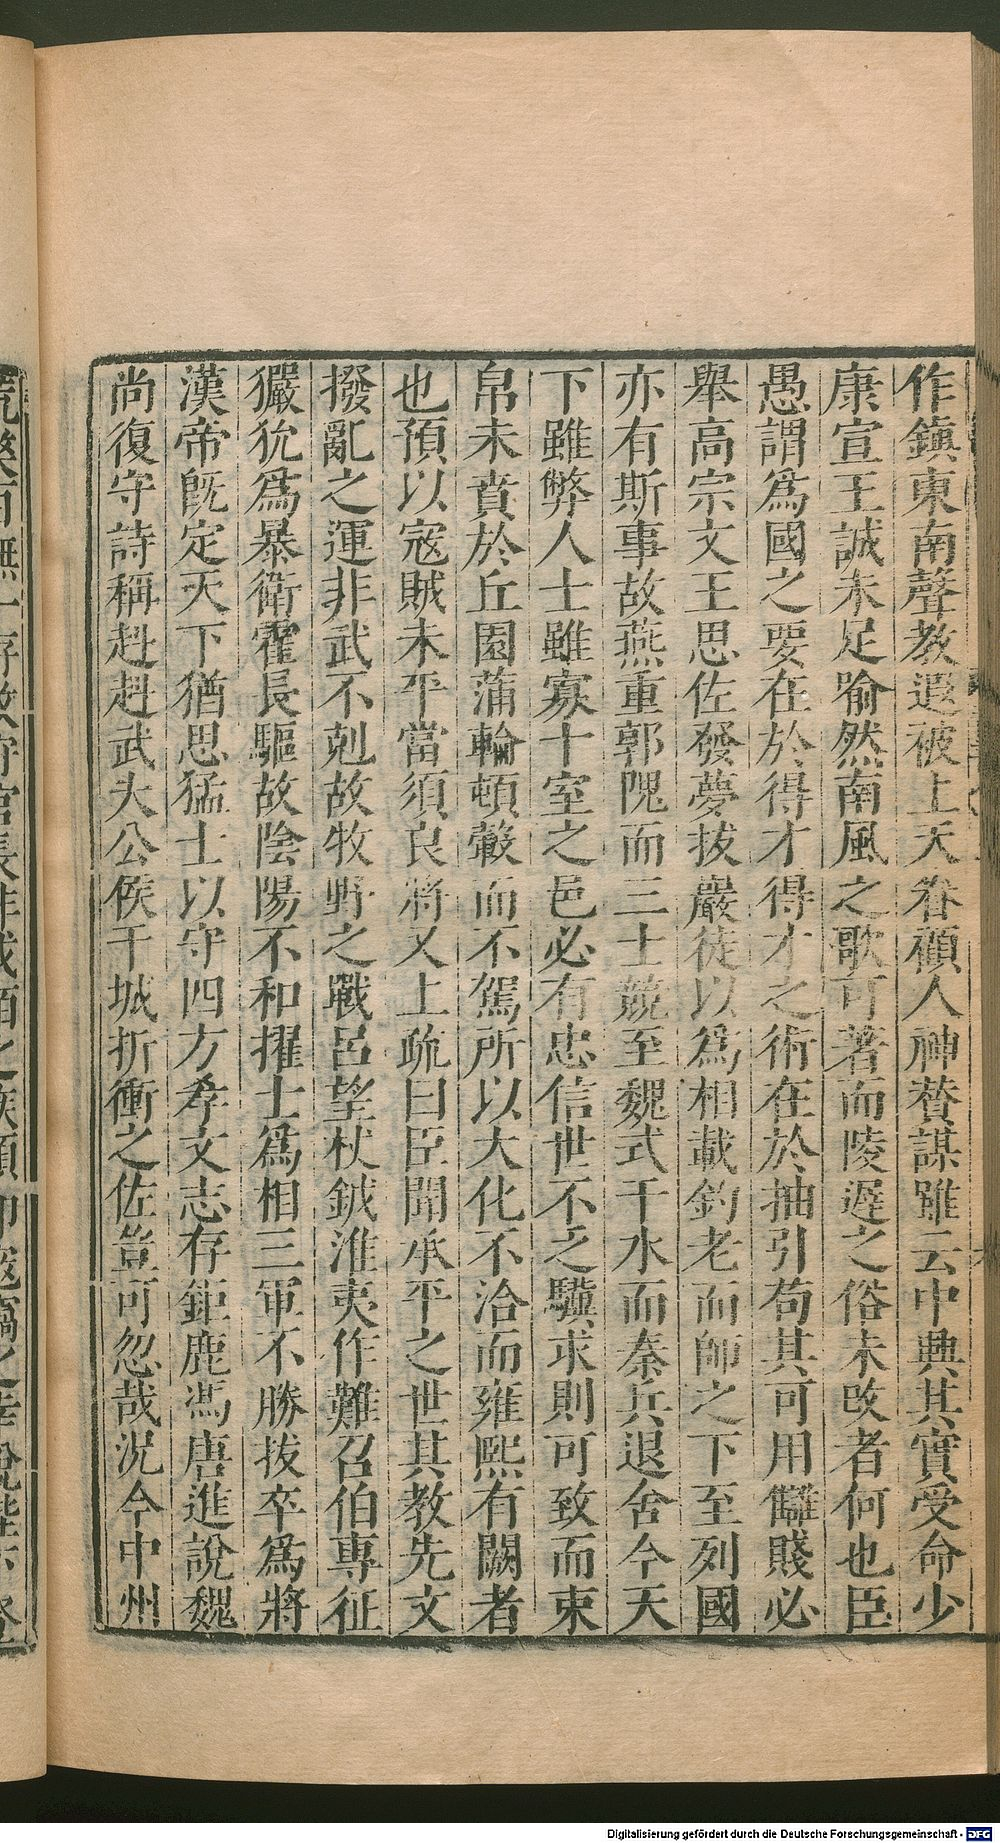 作鎭東南聲教遐被上天眷顧人神贊謀雖云中興其實受命少
康宣王誠未足喻然南風之歌可著而陵遲之俗未改者何也臣
愚謂爲國之要在於得才得才之術在於抽引苟其可用讎賤必
舉高宗文王思佐發夢拔巖徒以爲相載釣老而師之下至列國
亦有斯事故燕重郭隗而三士競至魏式干木而秦兵退舍今天
下雖弊人士雖寡十室之邑必有忠信世不乏驥求則可致而束
帛未賁於丘園蒲輪頓轂而不駕所以大化不洽而雍熙有闕者
也預以寇賊未平當須良將又上疏曰臣聞承平之世其教先文
撥亂之運非武不剋故牧野之戰呂望杖鉞淮夷作難召伯專征
玁狁爲暴衛霍長驅故陰陽不和擢士爲相三軍不勝拔卒爲將
漢帝旣定天下猶思猛士以守四方孝文志存鉅鹿馮唐進說魏
尚復守詩稱赳赳武夫公侯干城折衝之佐豈可忽哉況今中州
Digitalisierung gefördert durch die Deutsche Forschungsgemeinschaft - DFG